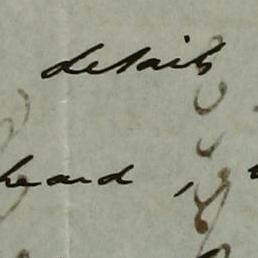 details
heard ,